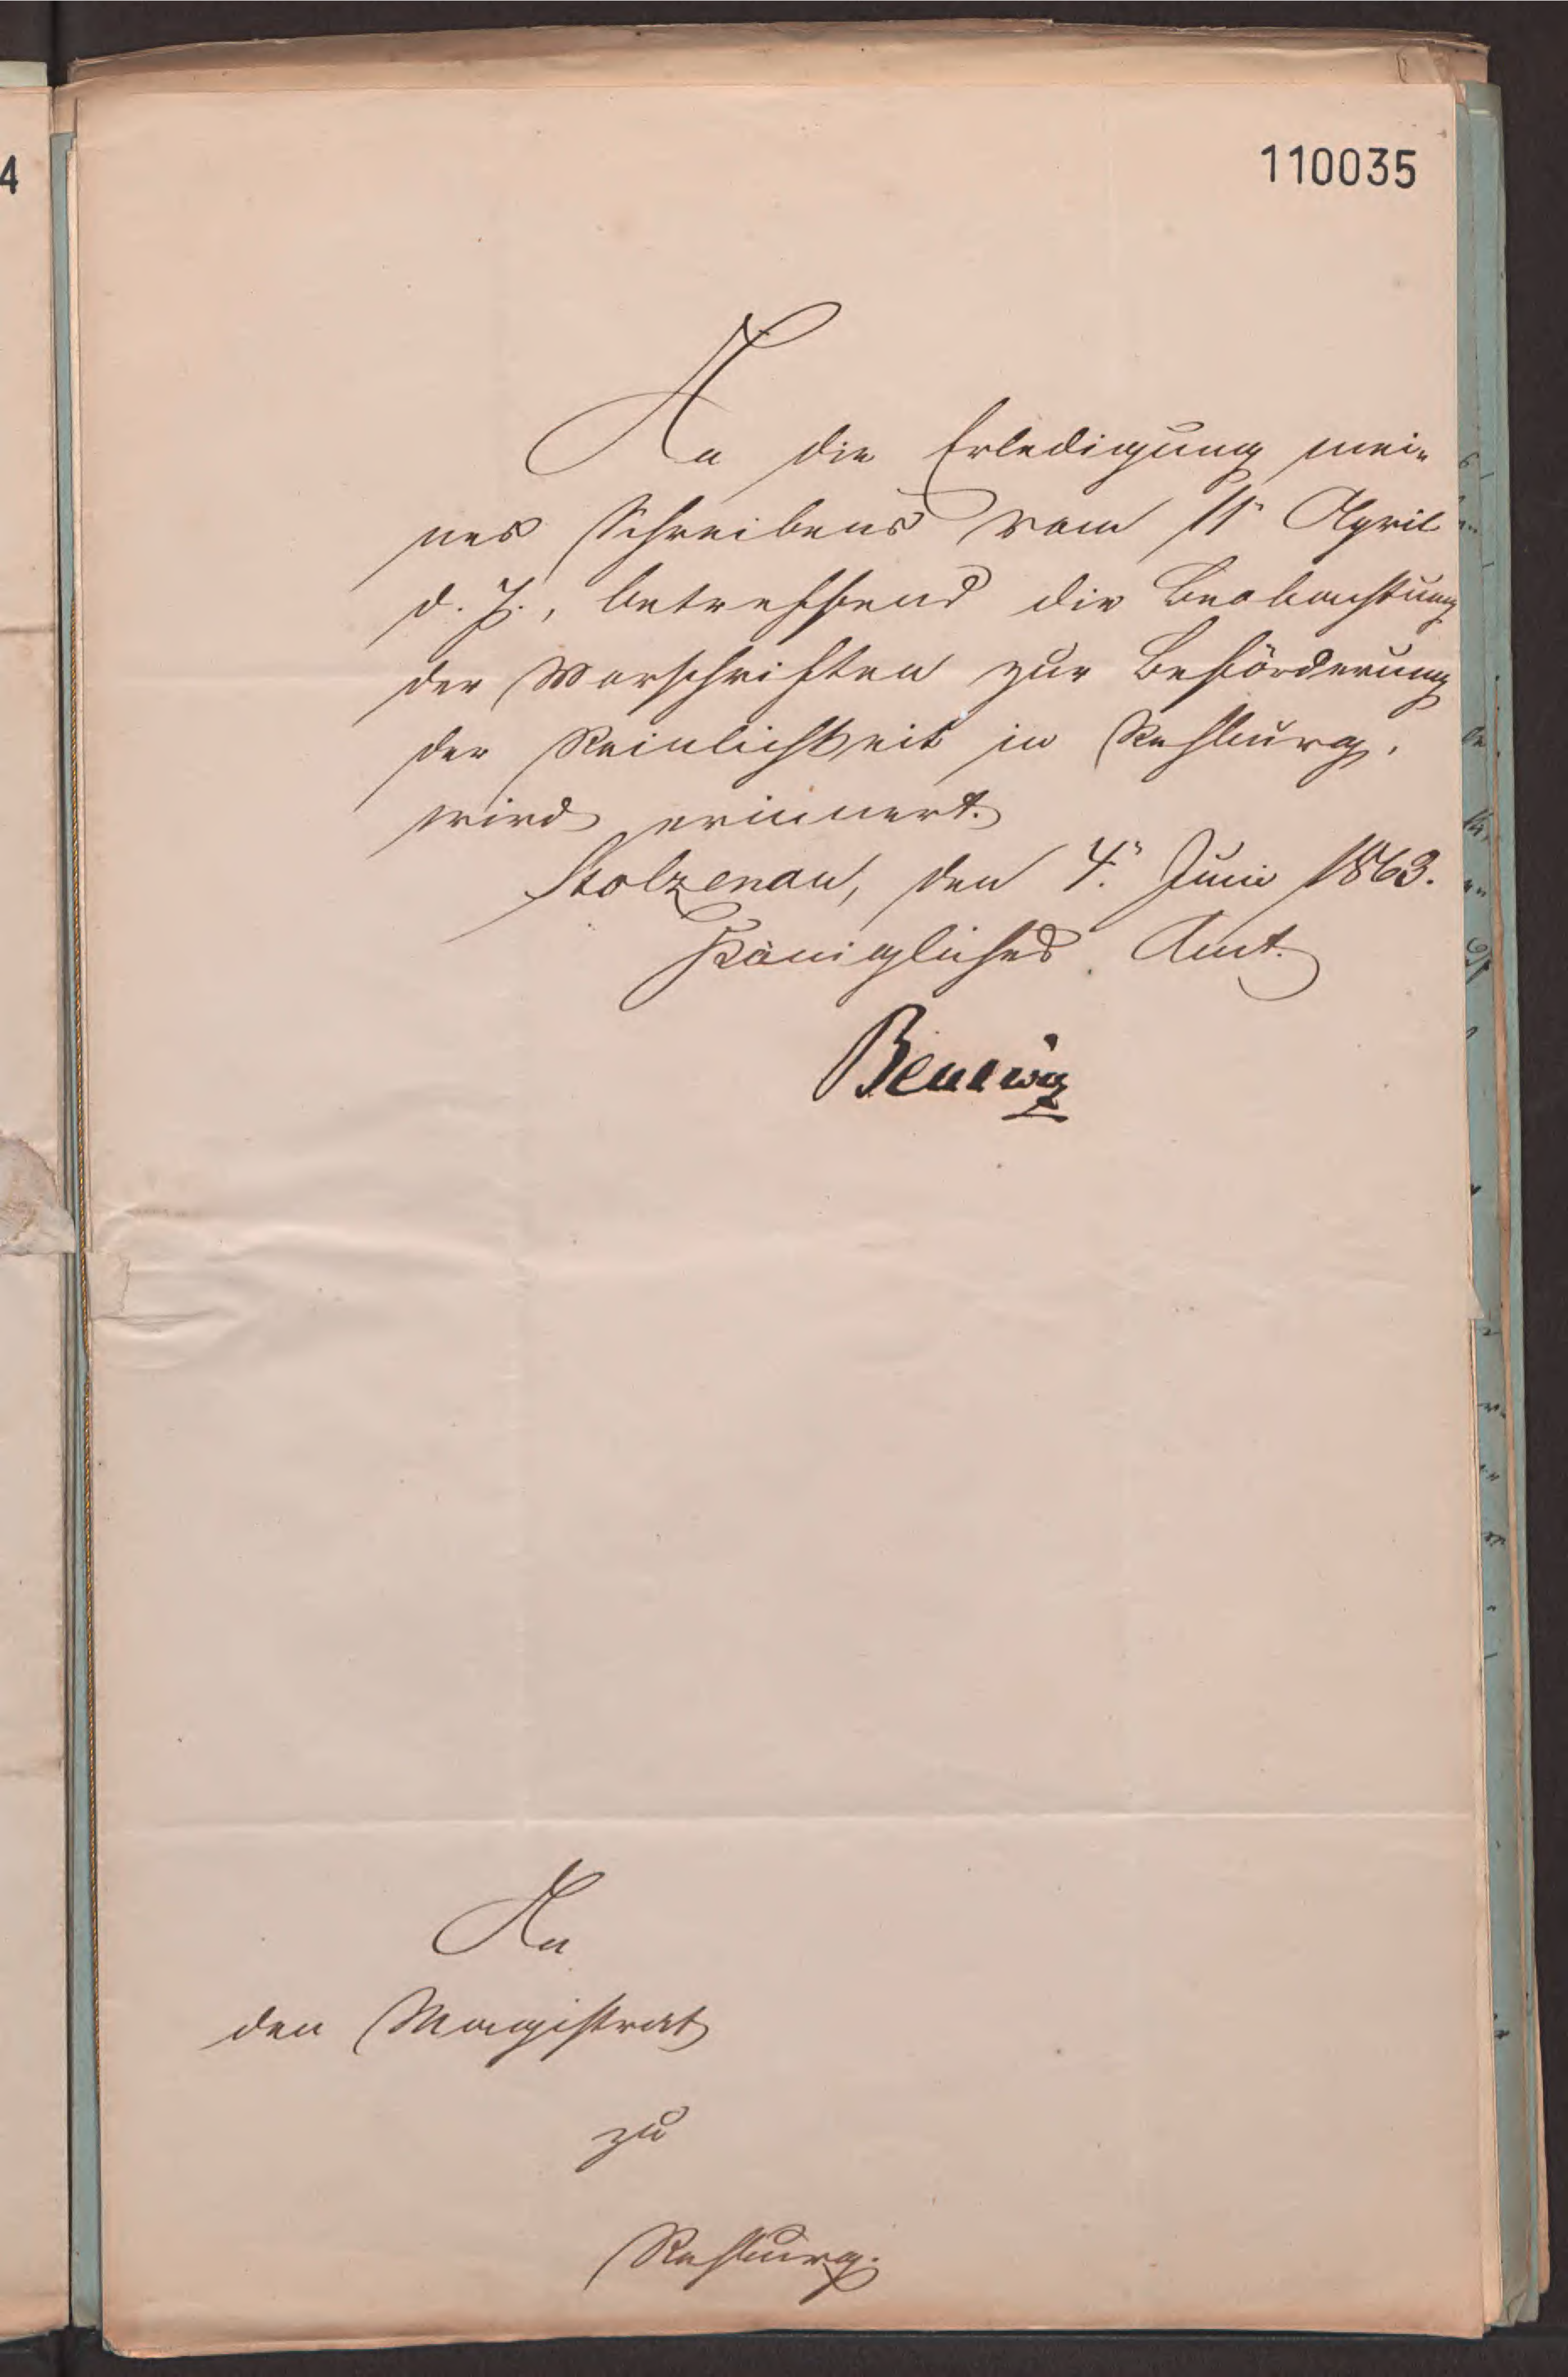 4
110035
An die Erledigung mei-
nes Schreibens vom 11n April
d. J., betreffend die Beobachtung
der Vorschriften zur Beförderung
der Reinlichkeit in Rehburg,
wird erinnert.
Stolzenau, den 4n. Juni 1863.
Königliches Amt.
An
den Magistrat
zu
Rehburg.